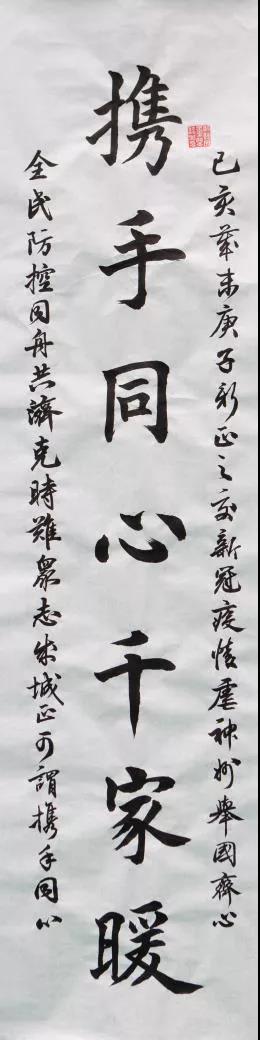 己亥岁末庚子新正之交新冠疫情虐神州举國齊心
携手同心千家暖
全民防控同舟共濟克時難眾志成城正可謂携手同心